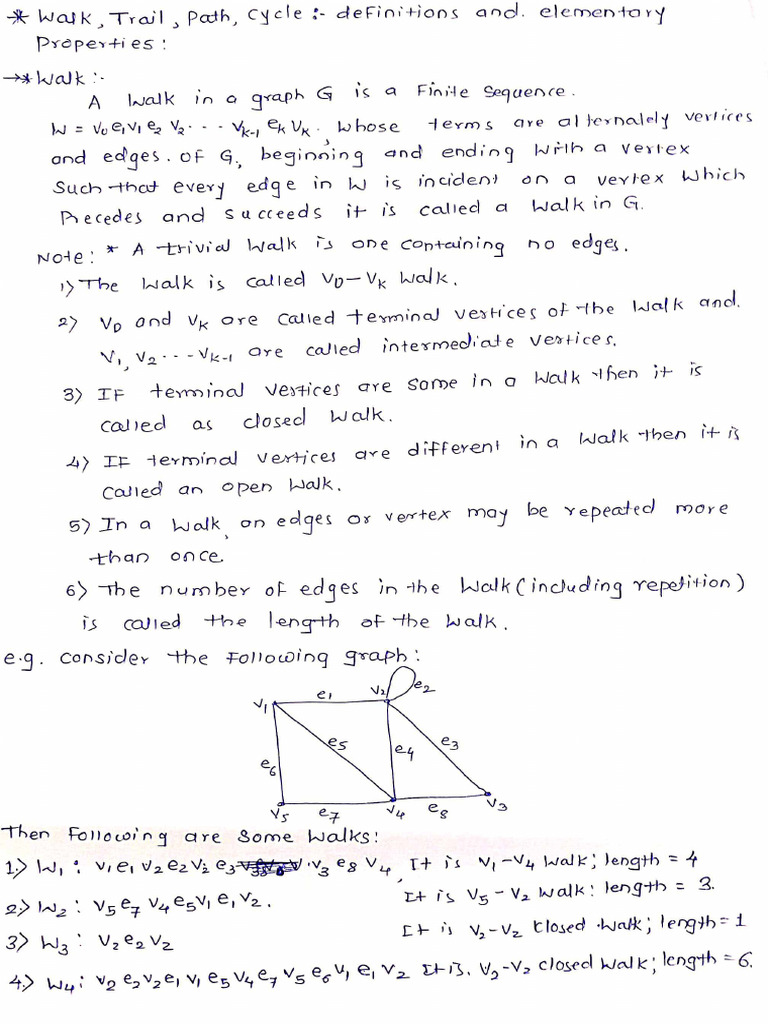 * Walk, Trail, Path, Cycle :- definitions and. elementary
Properties :
→* Walk :-
A Walk in a graph G is a Finite Sequence.
W = v₀e₁v₁e₂ v₂ - - - vₖ₋₁ eₖ vₖ, whose terms are alternately vertices
and edges. of G, beginning and ending with a vertex
Such that every edge in W is incident on a vertex which
Precedes and succeeds it is called a walk in G.
Note: * A trivial walk is one containing no edges.
1) The walk is called v₀-vₖ walk.
2) v₀ and vₖ are called terminal vertices of the walk and.
v₁, v₂ - - - vₖ₋₁ are called intermediate vertices.
3) IF terminal vertices are same in a walk then it is
called as closed walk.
4) IF terminal vertices are different in a walk then it is
called an open walk.
5) In a walk, an edges or vertex may be repeated more
than once.
6) The number of edges in the walk (including repetition)
is called the length of the walk.
e.g. consider the Following graph:
v₁ e₁ v₂ e₂
e₆ e₅ e₄ e₃
v₅ e₇ v₄ e₈ v₃
Then Following are some walks:
1.) W₁ : v₁e₁v₂e₂v₂e₃ v₃ e₈ v₄, It is v₁-v₄ walk; length = 4
2.) W₂ : v₅e₇v₄e₅v₁e₁v₂. It is v₅-v₂ walk: length = 3.
3) W₃ : v₂e₂v₂ It is v₂-v₂ closed walk; length = 1
4.) W₄ : v₂ e₂v₂e₁ v₁ e₅v₄e₇ v₅ e₆ v₁ e₁ v₂ It is. v₂-v₂ closed walk; length = 6.